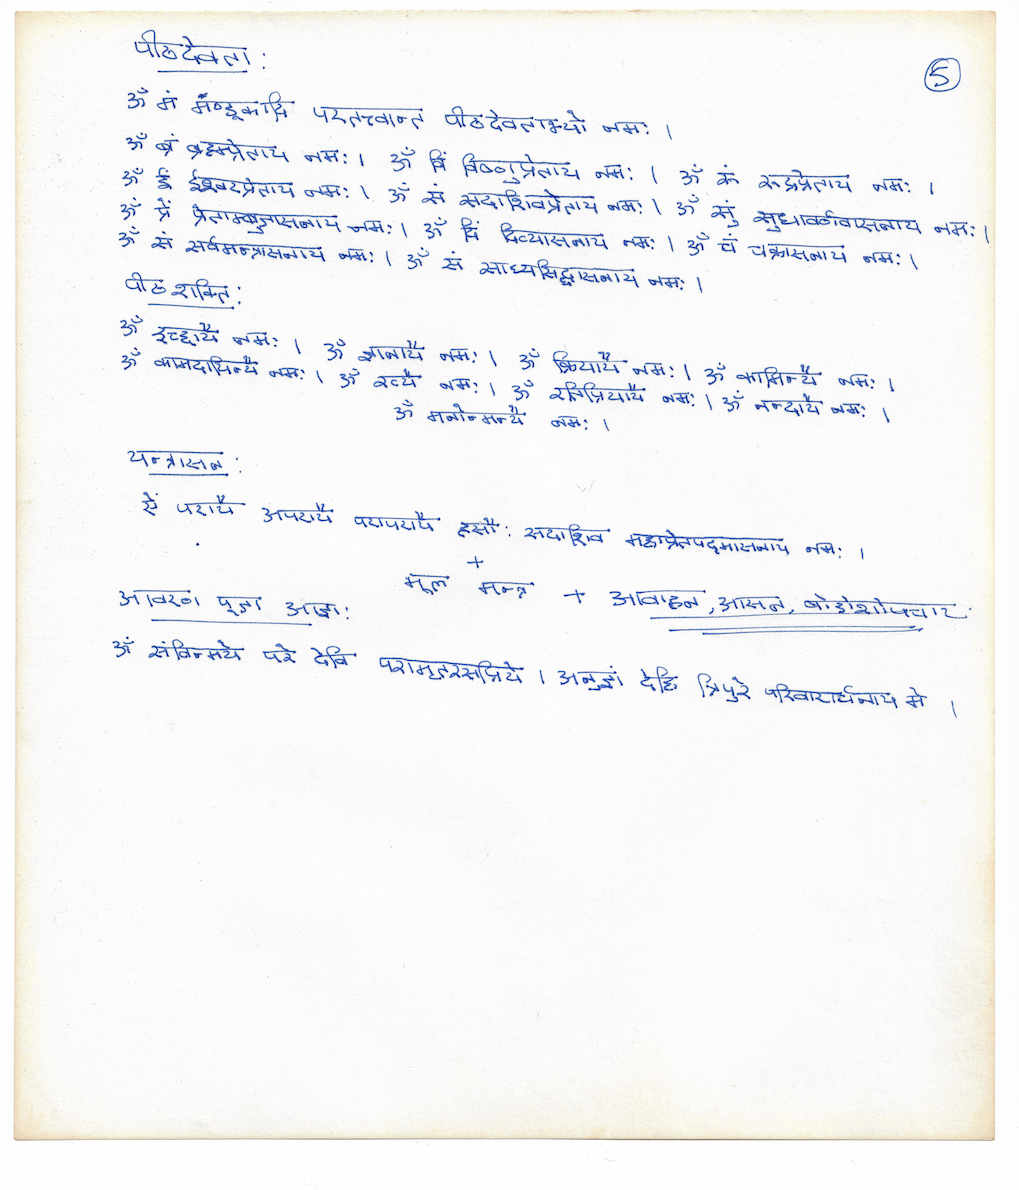 पीठदेवता :
5
ॐ मं मण्डूकादि परतत्त्वान्त पीठदेवताभ्यो नमः ।
ॐ ब्रं ब्रह्मप्रेताय नमः । ॐ विं विष्णुप्रेताय नमः । ॐ रूं रूद्रप्रेताय नमः ।
ॐ ईं ईश्वरप्रेताय नमः । ॐ सं सदाशिवप्रेताय नमः । ॐ सुं सुधावर्णवासनाय नमः ।
ॐ प्रें प्रेताम्बुजासनाय नमः । ॐ दिं दिव्यासनाय नमः । ॐ चं चक्रासनाय नमः ।
ॐ सं सर्वमन्त्रासनाय नमः । ॐ सं साध्यसिद्धासनाय नमः ।
पीठ शक्ति :
ॐ इच्छायै नमः । ॐ ज्ञानायै नमः । ॐ क्रियायै नमः । ॐ कामिन्यै नमः ।
ॐ कामदायिन्यै नमः । ॐ रत्यै नमः । ॐ रतिप्रियायै नमः । ॐ नन्दायै नमः ।
ॐ मनोन्मन्यै नमः ।
यन्त्रासन :
ऐं परायै अपरायै परापरायै हसौः सदाशिव महाप्रेतपद्मासनाय नमः ।
+
मूल मन्त्र + आवाहन, आसन, षोडोशोपचार
आवरण पूजा आज्ञा :
ॐ संविन्मये परे देवि परामृतरसप्रिये । अनुज्ञां देहि त्रिपुरे परिवारार्चनाय मे ।